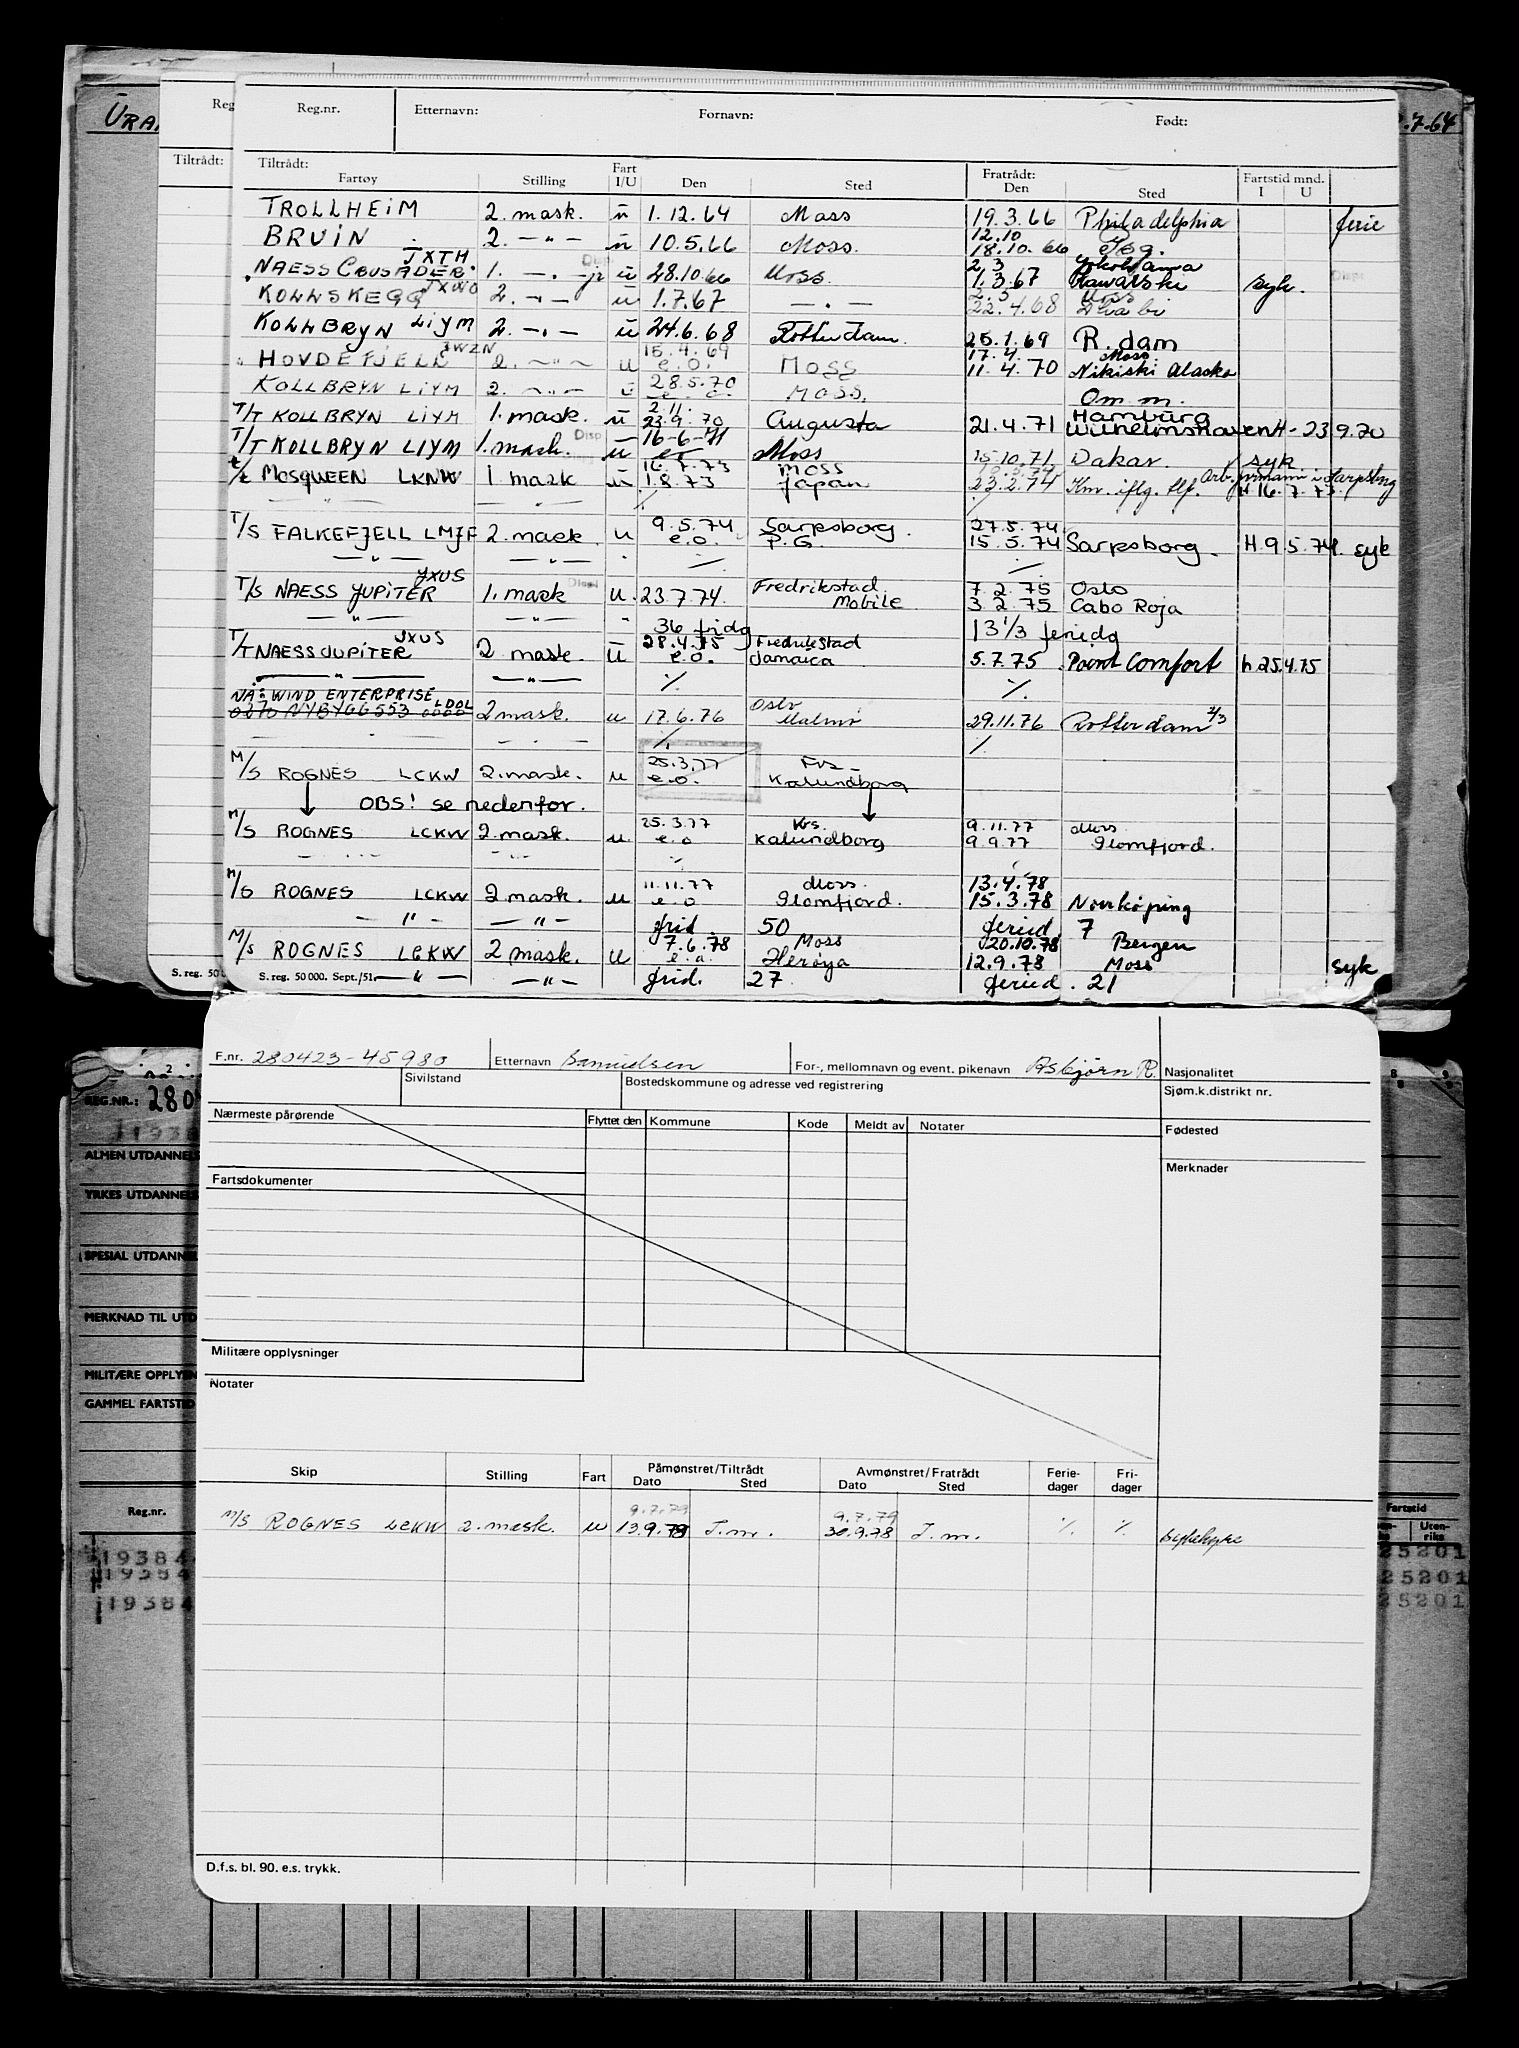 Reg.nr. Etternavn: Fornavn: Født: .7.64
Tiltrådt: Tiltrådt: Fart Fratrådt: Fartstid mnd.
Fartøy Stilling I/U Den Sted Den Sted I U
TROLLHEIM 2. mask. u 1.12.64 Moss 19.3.66 Philadelphia ferie
12.10
BRUIN 2. —"— u 10.5.66 Moss. 18.10.66
JXTH 2 3 Yokohama
NAESS CRUSADER 1. —.— u 28.10.66 Moss. 1.3.67 Kawasaki syk.
KOLLSKEGG 2. —"— u 1.7.67 —.— 22.4.68
KOLLBRYN LIYM 2. —.— u 24.6.68 Rotterdam. 25.1.69 R.dam
JWZN 15.4.69 17.4. Moss.
HOVDEFJELL 2. —"— u e.o. Moss 11.4.70 Nikiski Alaska
28.5.70
KOLLBRYN LIYM 2. —"— u e.o. Moss. Om m.
2.11. Hamburg
T/T KOLLBRYN LIYM 1. mask. u 23.9.70 Augusta 21.4.71 Wilhelmshaven H-23 9.70
T/T KOLLBRYN LIYM 1. mask. Disp u 16-6-71 eo Moss 15.10.71 Dakar. syk
16.7.73 Moss
t/t MOSQUEEN LKNW 1 mask u 1.8.73 Japan 23.2.74 Km. iflg. tlf. H 16.7.73
9.5.74 Sarpsborg. 27.5.74.
T/S FALKEFJELL LMJF 2. mask u e.o. P.G. 15.5.74 Sarpsborg. H.9 5.74. syk
—"— —"— " ./. ./.
JXUS Disp Fredrikstad. 7.2.75 Oslo
T/S NAESS JUPITER 1. mask u. 23.7 74. Mobile 3 2.75 Cabo Roja
—"— —"— " 36 fridg 13 1/3 feriedg
JXUS 28.4.75 Fredrikstad
T/T NAESS JUPITER 2 mask. u e.o. Jamaica 5.7.75. Point Comfort h 25.4.75
—"— —"— ./. ./.
NÅ: WIND ENTERPRISE
0270 NYBYGG 553 0000 LDOL 2 mask. u 17.6.76 Oslo Malmø 29.11.76 Rotterdam 2/3
./. ./.
25.3.77
M/S ROGNES LCKW 2. mask. u e.o. Kalundborg
OBS! se nedenfor.
25.3.77 9.11.77 Moss
M/S ROGNES LCKW 2. mask. u. e.o Kalundborg 9 9.77 Glomfjord.
11.11.77 Moss. 13.4.78
M/S ROGNES LCKW 2 mask. u e o Glomfjord. 15.3.78 Norrköping
—"— —"— frid 50 feried 7
7.6.78 Moss 20.10.78 Bergen
M/S ROGNES LCKW 2 mask. u e.o. Herøya 12.9.78 Moss syk
S. reg. 50 000. Sept./51. —"— —"— frid. 27. feried. 21
F.nr. 280423-45980 Etternavn Samuelsen For-, mellomnavn og event. pikenavn Asbjørn R. Nasjonalitet
Sivilstand Bostedskommune og adresse ved registrering Sjøm.k.distrikt nr.
Nærmeste pårørende Flyttet den Kommune Kode Meldt av Notater Fødested
Merknader
Fartsdokumenter
Militære opplysninger
Notater
Skip Stilling Fart Påmønstret/Tiltrådt Avmønstret/Fratrådt Ferie- Fri-
Dato Sted Dato Sted dager dager
9.7.79 9.7.79
M/S ROGNES LCKW 2. mask. u 13.9.78 J.m. 30.9.78 J.m. ./. ./. sykehyre
D.f.s. bl. 90. e.s. trykk.
REG.NR.: 280
ALMEN UTDANNELS
YRKES UTDANNELS
SPESIAL UTDANNEL
MERKNAD TIL UTD
MILITÆRE OPPLYSN
GAMMEL FARTSTID
Reg.nr. Fartstid
Uten-
riks
19384 25201
19384 25201
19384 25201